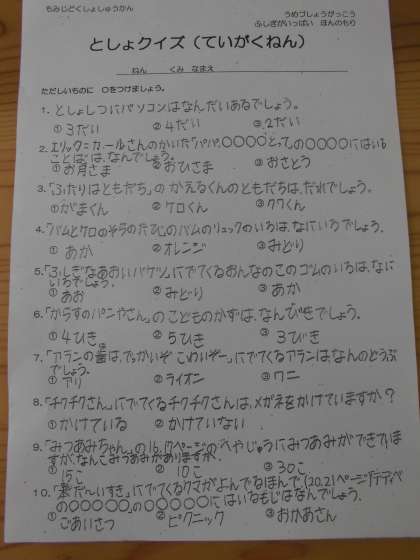 もみじどくしょしゅうかん
うめプしょうがっこう
ふしぎがいっぱい ほんのもり
としょクイズ（ていがくねん）
ねん くみ なまえ
ただしいものに ○をつけましょう。
1. としょしつにパソコンはなんだいあるでしょう。
① 3だい ② 4だい ③ 2だい
2. エリック=カールさんのかいた「パパ、○○○○とっての○○○○にはいる
ことばは、なんでしょう。
① お月さま ② おひさま ③ おさとう
3. 「ふたりはともだち」の かえるくんのともだちは、だれでしょう。
① がまくん ② ケロくん ③ クワくん
4. 「バムとケロのそらのたび」のバムのリュックのいろは、なにいろでしょう。
① あか ② オレンジ ③ みどり
5. 「ふしぎなあおいバケツ」にでてくるおんなのこのゴムのいろは、なに
いろでしょう。
① あお ② みどり ③ あか
6. 「からすのパンやさん」のこどものかずは、なんびきでしょう。
① 4ひき ② 5ひき ③ 3びき
7. 「アランの歯は、でっかいぞ こわいぞー」にでてくるアランはなんのどうぶ
でしょう。
① アリ ② ライオン ③ ワニ
8. 「チクチクさん」にでてくるチクチクさんは、メガネをかけていますか？
① かけている ② かけていない
9. 「みつあみちゃん」の16、17ページの へやじゅうにみつあみができていま
すが、なんこみつあみがありますか。
① 15こ ② 10こ ③ 30こ
10. 「だ〜いすき」にでてくるクマがよんでるほんで(20、21ページ)「テディベ
の○○○○○、の○○○○○にはいるもじはなんでしょう。
① ごあいさつ ② ピクニック ③ おかあさん